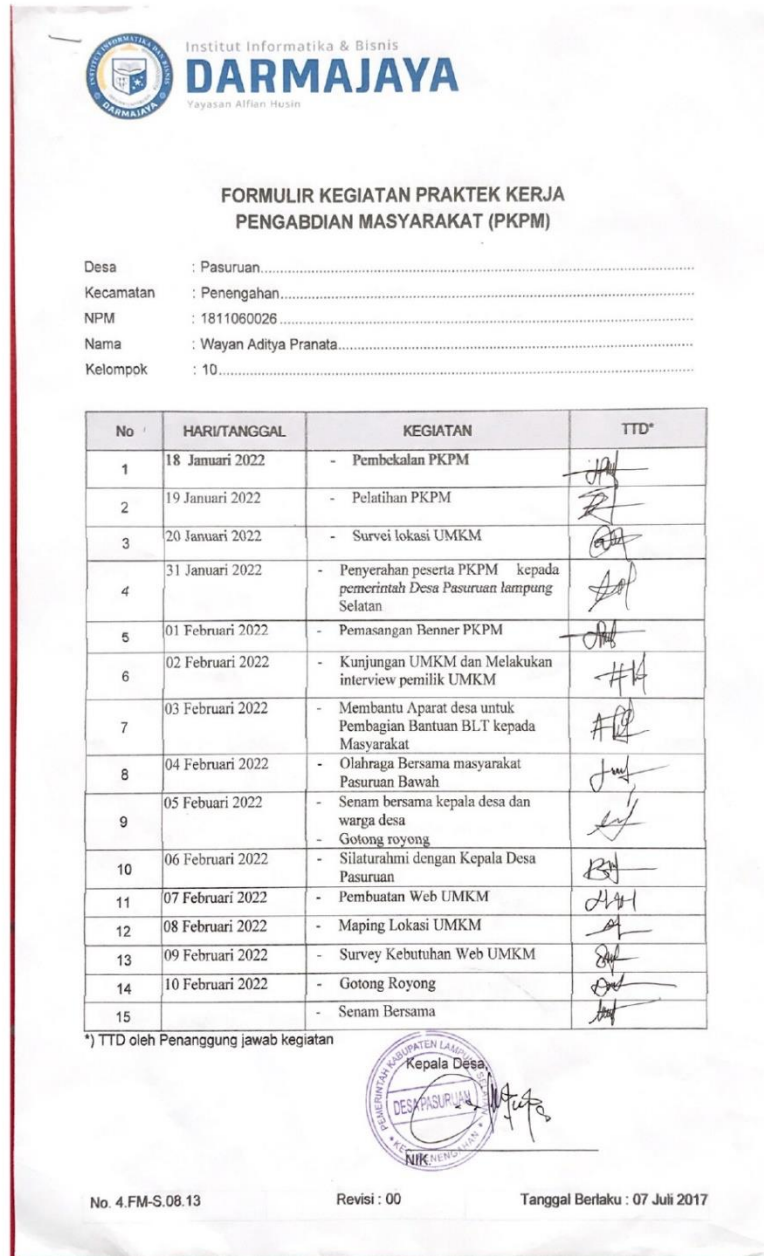 Institut Informatika & Bisnis
DARMAJAYA
Yayasan Alfian Husin
INSTITUT INFORMATIKA DAN BISNIS
DARMAJAYA
FORMULIR KEGIATAN PRAKTEK KERJA
PENGABDIAN MASYARAKAT (PKPM)
Desa : Pasuruan
Kecamatan : Penengahan
NPM : 1811060026
Nama : Wayan Aditya Pranata
Kelompok : 10
No HARI/TANGGAL KEGIATAN TTD*
1 18 Januari 2022 - Pembekalan PKPM
2 19 Januari 2022 - Pelatihan PKPM
3 20 Januari 2022 - Survei lokasi UMKM
4 31 Januari 2022 - Penyerahan peserta PKPM kepada
pemerintah Desa Pasuruan lampung
Selatan
5 01 Februari 2022 - Pemasangan Benner PKPM
6 02 Februari 2022 - Kunjungan UMKM dan Melakukan
interview pemilik UMKM
7 03 Februari 2022 - Membantu Aparat desa untuk
Pembagian Bantuan BLT kepada
Masyarakat
8 04 Februari 2022 - Olahraga Bersama masyarakat
Pasuruan Bawah
9 05 Febuari 2022 - Senam bersama kepala desa dan
warga desa
- Gotong royong
10 06 Februari 2022 - Silaturahmi dengan Kepala Desa
Pasuruan
11 07 Februari 2022 - Pembuatan Web UMKM
12 08 Februari 2022 - Maping Lokasi UMKM
13 09 Februari 2022 - Survey Kebutuhan Web UMKM
14 10 Februari 2022 - Gotong Royong
15 - Senam Bersama
*) TTD oleh Penanggung jawab kegiatan
Kepala Desa,
PEMERINTAH KABUPATEN LAMPUNG SELATAN
DESA PASURUAN
KEC. PENENGAHAN
NIK.
No. 4.FM-S.08.13 Revisi : 00 Tanggal Berlaku : 07 Juli 2017